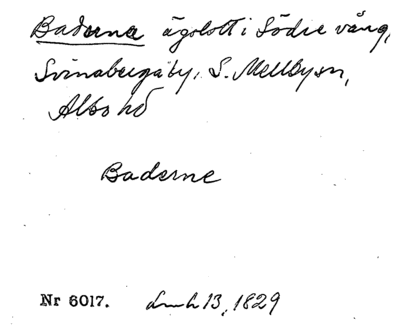 Baderne ägolott i Södre vång,
Svinaberga by, S. Mellby sn,
Albo hd
Baderne
Nr 6017. Lmh 13, 1829